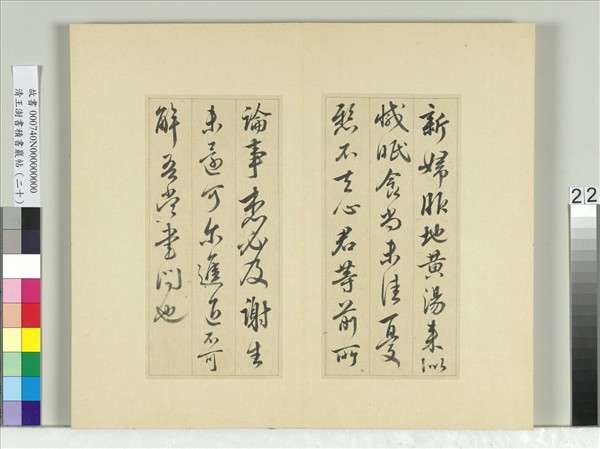 新婦服地黃湯來似
減眠食尚未佳憂
懸不去心君等前所
論事想必及謝生
未還可爾進退不可
解吾當書問也
故書 000740N000000000
清王澍書積書巖帖(二十)
22